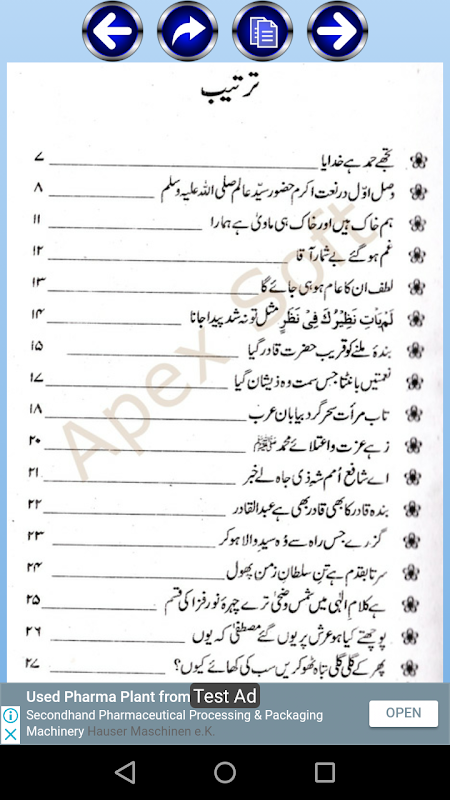 ترتیب
تجھے حمد ہے خدایا ۷
وصل اوّل در نعت اکرم حضور سیّد عالم صلی اللہ علیہ وسلم ۸
ہم خاک ہیں اور خاک ہی ماویٰ ہے ہمارا ۱۱
غم ہو گئے بے شمار آقا ۱۲
لطف ان کا عام ہو ہی جائے گا ۱۳
لَمْ یَاتِ نَظِیْرُکَ فِیْ نَظَرٍ مثل تو نہ شد پیدا جانا ۱۴
بندہ ملنے کو قریب حضرت قادر گیا ۱۵
نعمتیں بانٹتا جس سمت وہ ذیشان گیا ۱۷
تاب مرأت سحر گرد بیابان عرب ۱۸
زہے عزت و اعتلائے محمد ﷺ ۲۰
اے شافع اُمم شہ ذی جاہ لے خبر ۲۱
بندہ قادر کا بھی قادر بھی ہے عبدالقادر ۲۲
گزرے جس راہ سے وُہ سید والا ہو کر ۲۳
سر تا بقدم ہے تنِ سلطانِ زمن پھول ۲۴
ہے کلامِ الٰہی میں شمس و ضحیٰ ترے چہرۂ نور فزا کی قسم ۲۵
پوچھتے کیا ہو عرش پر یوں گئے مصطفیٰ کہ یوں ۲۶
پھر کے گلی گلی تباہ ٹھوکریں سب کی کھائے کیوں؟ ۲۷
Apex Soft
Used Pharma Plant from
Test Ad
Secondhand Pharmaceutical Processing & Packaging
Machinery Hauser Maschinen e.K.
OPEN